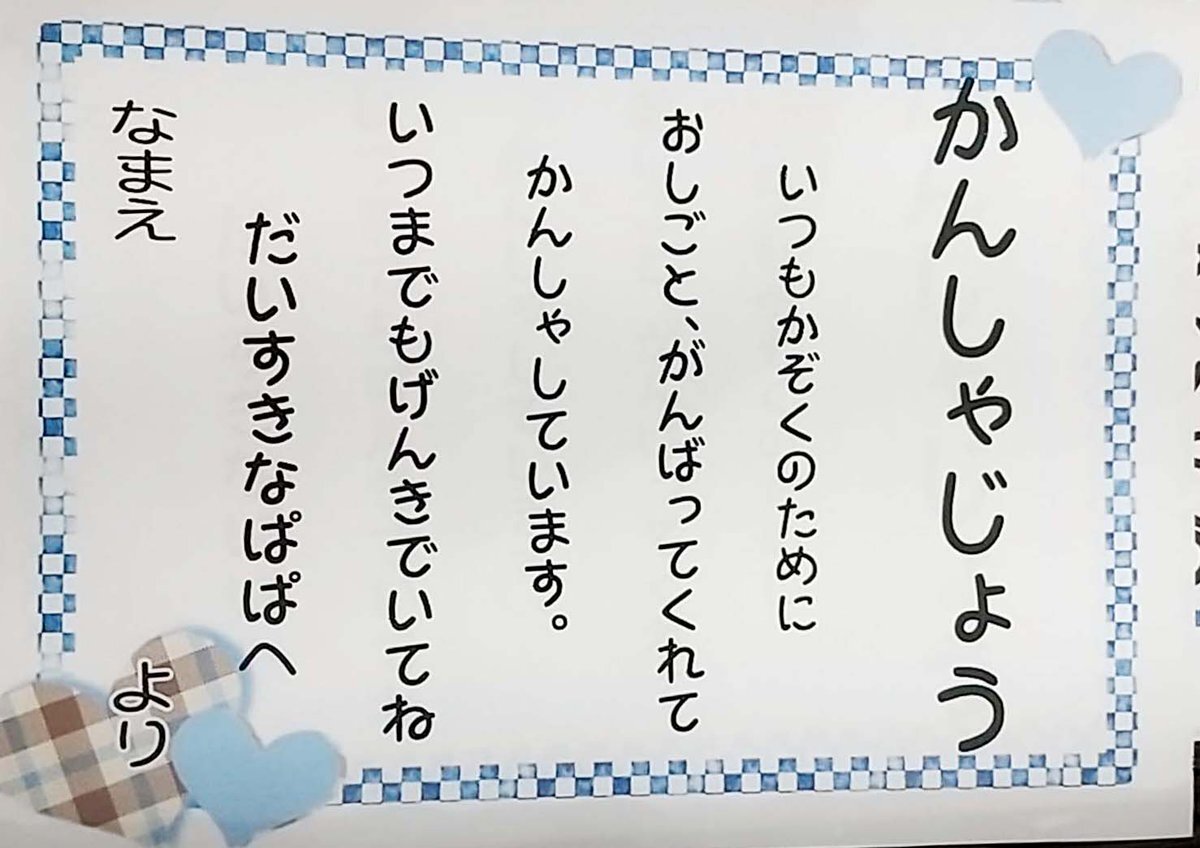 かんしゃじょう
いつもかぞくのために
おしごと、がんばってくれて
かんしゃしています。
いつまでもげんきでいてね
だいすきなぱぱへ
なまえ
より